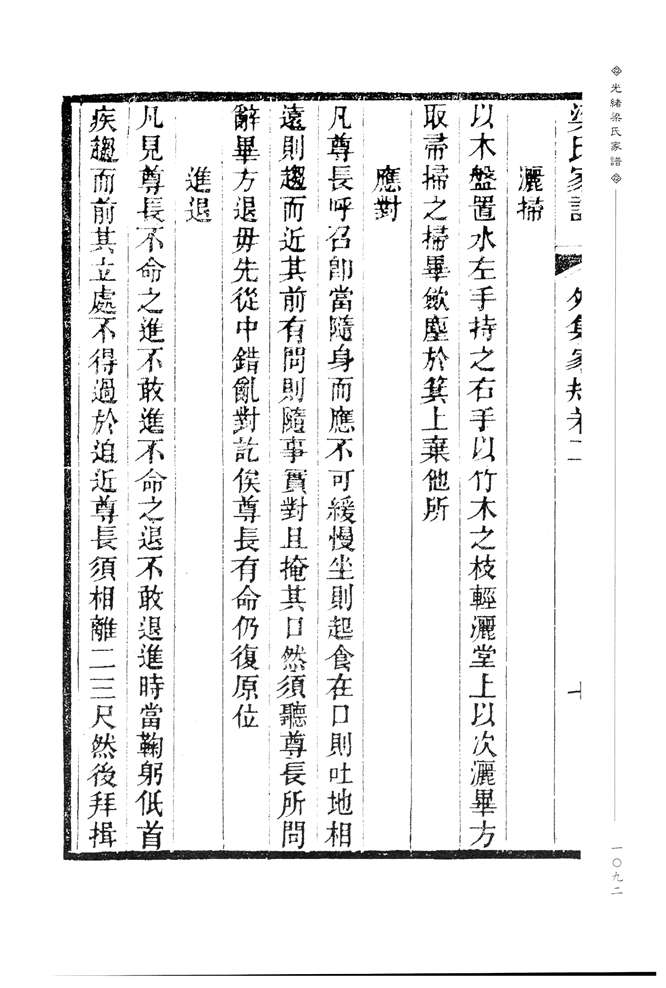 光緒梁氏家譜
一〇九二
梁氏家譜 外集家規卷二 七
灑掃
以木盤置水左手持之右手以竹木之枝輕灑堂上以次灑畢方
取帚掃之掃畢斂塵於箕上棄他所
應對
凡尊長呼召卽當隨身而應不可緩慢坐則起食在口則吐地相
遠則趨而近其前有問則隨事實對且掩其口然須聽尊長所問
辭畢方退毋先從中錯亂對訖俟尊長有命仍復原位
進退
凡見尊長不命之進不敢進不命之退不敢退進時當鞠躬低首
疾趨而前其立處不得過於迫近尊長須相離二三尺然後拜揖